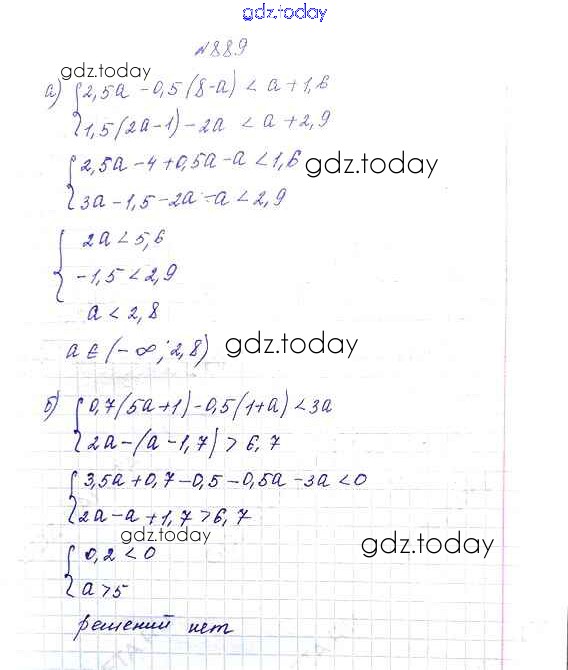 gdz.today
№889
gdz.today
а) {2,5a - 0,5(8-a) < a + 1,6
1,5(2a-1) - 2a < a + 2,9
{2,5a - 4 + 0,5a - a < 1,6 gdz.today
3a - 1,5 - 2a - a < 2,9
{2a < 5,6
-1,5 < 2,9
a < 2,8
a ∈ (-∞; 2,8) gdz.today
б) {0,7(5a+1) - 0,5(1+a) < 3a
2a - (a - 1,7) > 6,7
{3,5a + 0,7 - 0,5 - 0,5a - 3a < 0
2a - a + 1,7 > 6,7
gdz.today
{0,2 < 0 gdz.today
a > 5
решений нет